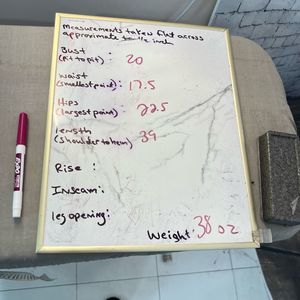 Measurements taken flat across
approximate to the inch
Bust
(Pit to pit) : 20
Waist
(smallest point) : 17.5
Hips
(largest point) : 22.5
Length
(shoulder to hem) 39
Rise :
Inseam :
leg opening :
Weight : 38 oz
EXPO